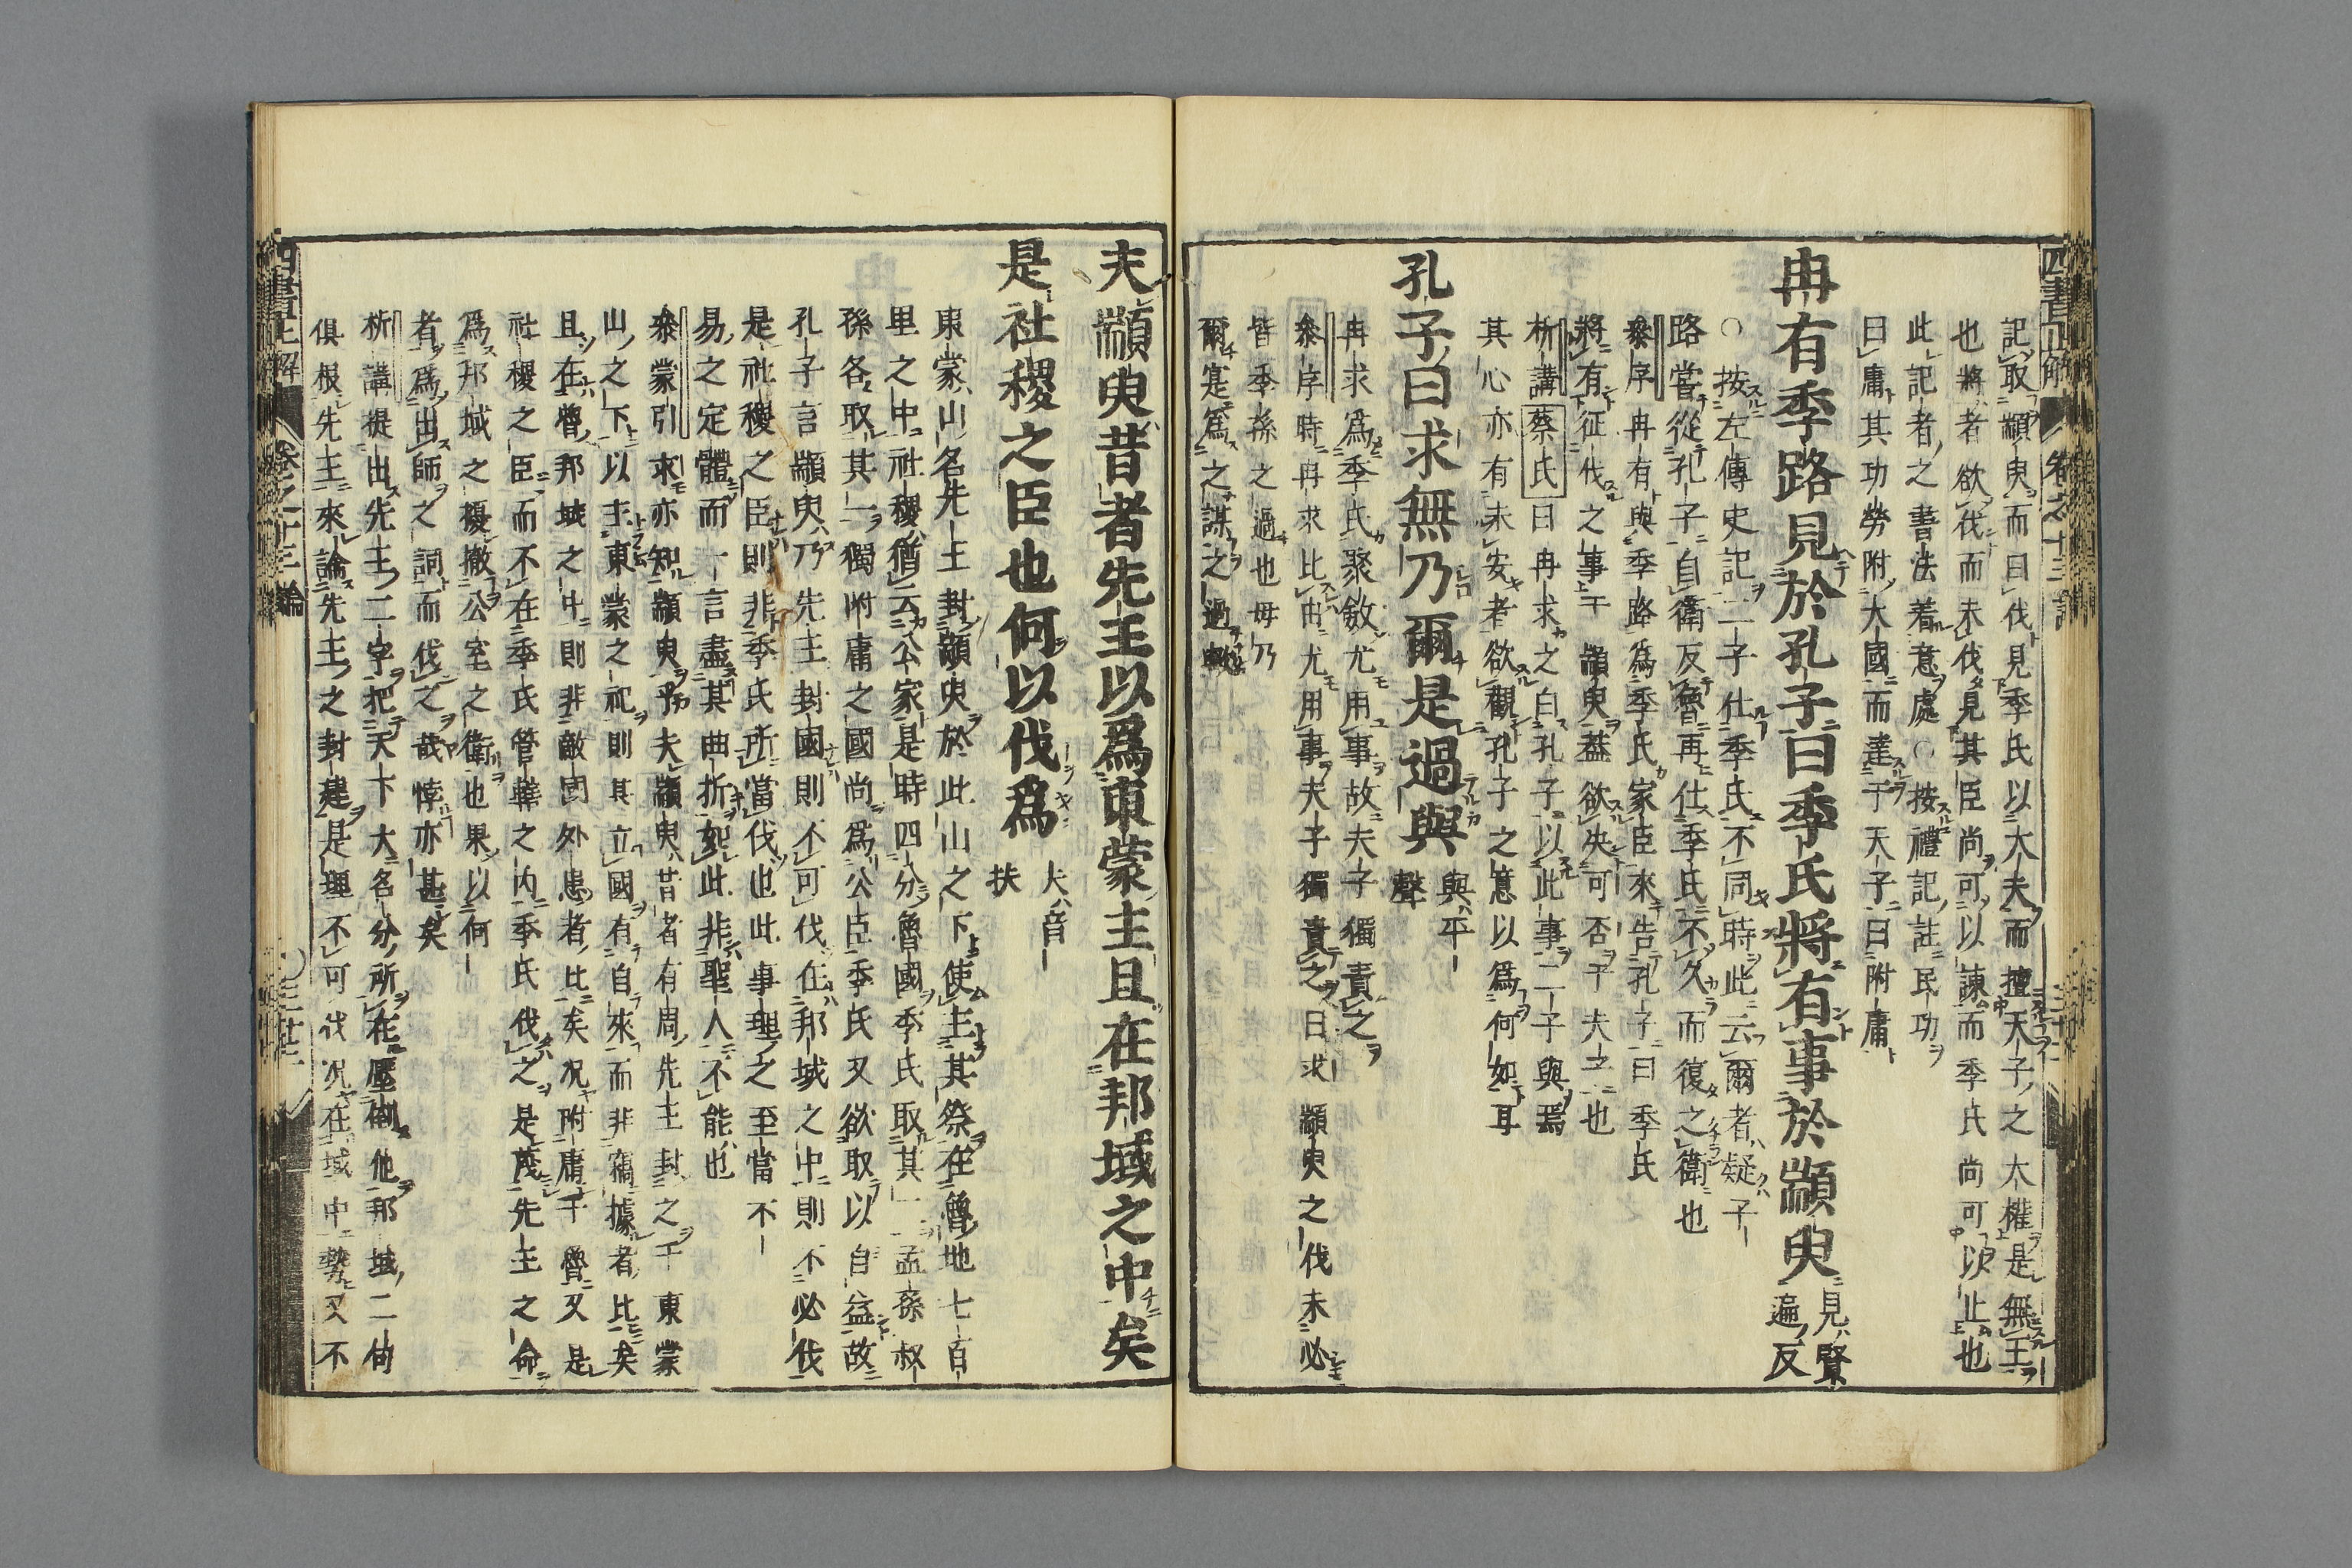 記取顓臾而曰伐見季氏以大夫而擅天子之大權是無王
也將者欲伐而未伐見其臣尚可以諫而季氏尚可以止也
此記者之書法着意處○按禮記註民功
曰庸其功勞附大國而達于天子曰附庸
冉有季路見於孔子曰季氏將有事於顓臾
見賢
遍反
○按左傳史記二子仕季氏不同時此云爾者疑子
路嘗從孔子自衛反魯再仕季氏不久而復之衛也
叅序冉有與季路爲季氏家臣來告孔子曰季氏
將有征伐之事于顓臾葢欲决可否于夫子也
析講蔡氏曰冉求之白孔子以此事二子與焉
其心亦有未安者欲觀孔子之意以爲何如耳
孔子曰求無乃爾是過與
與平
聲
冉求爲季氏聚斂尤用事故夫子獨責之
叅序時冉求比由尤用事夫子獨責之曰求顓臾之伐未必
皆季孫之過也毋乃
爾寔爲之謀之過歟
夫顓臾昔者先王以爲東蒙主且在邦域之中矣
是社稷之臣也何以伐爲
夫音
扶
東蒙山名先王封顓臾於此山之下使主其祭在魯地七百
里之中社稷猶云公家是時四分魯國季氏取其二孟孫叔
孫各取其一獨附庸之國尚爲公臣季氏又欲取以自益故
孔子言顓臾乃先王封國則不可伐在邦域之中則不必伐
是社稷之臣則非季氏所當伐也此事理之至當不
易之定體而一言盡其曲折如此非聖人不能也
叅蒙引求亦知顓臾乎夫顓臾昔者有周先王封之于東蒙
山之下以主東蒙之祀則其立國有自來而非竊據者比矣
且在魯邦域之中則非敵國外患者比矣况附庸于魯又是
社稷之臣而不在季氏管轄之内季氏伐之是蔑先王之命
爲邦域之擾撤公室之衛也果以何
者爲出師之詞而伐之哉悖亦甚矣
析講提出先王二字把天下大名分所在壓倒他邦域二句
俱根先王來論先王之封建是理不可伐况在域中勢又不
四書正解
卷之十三論